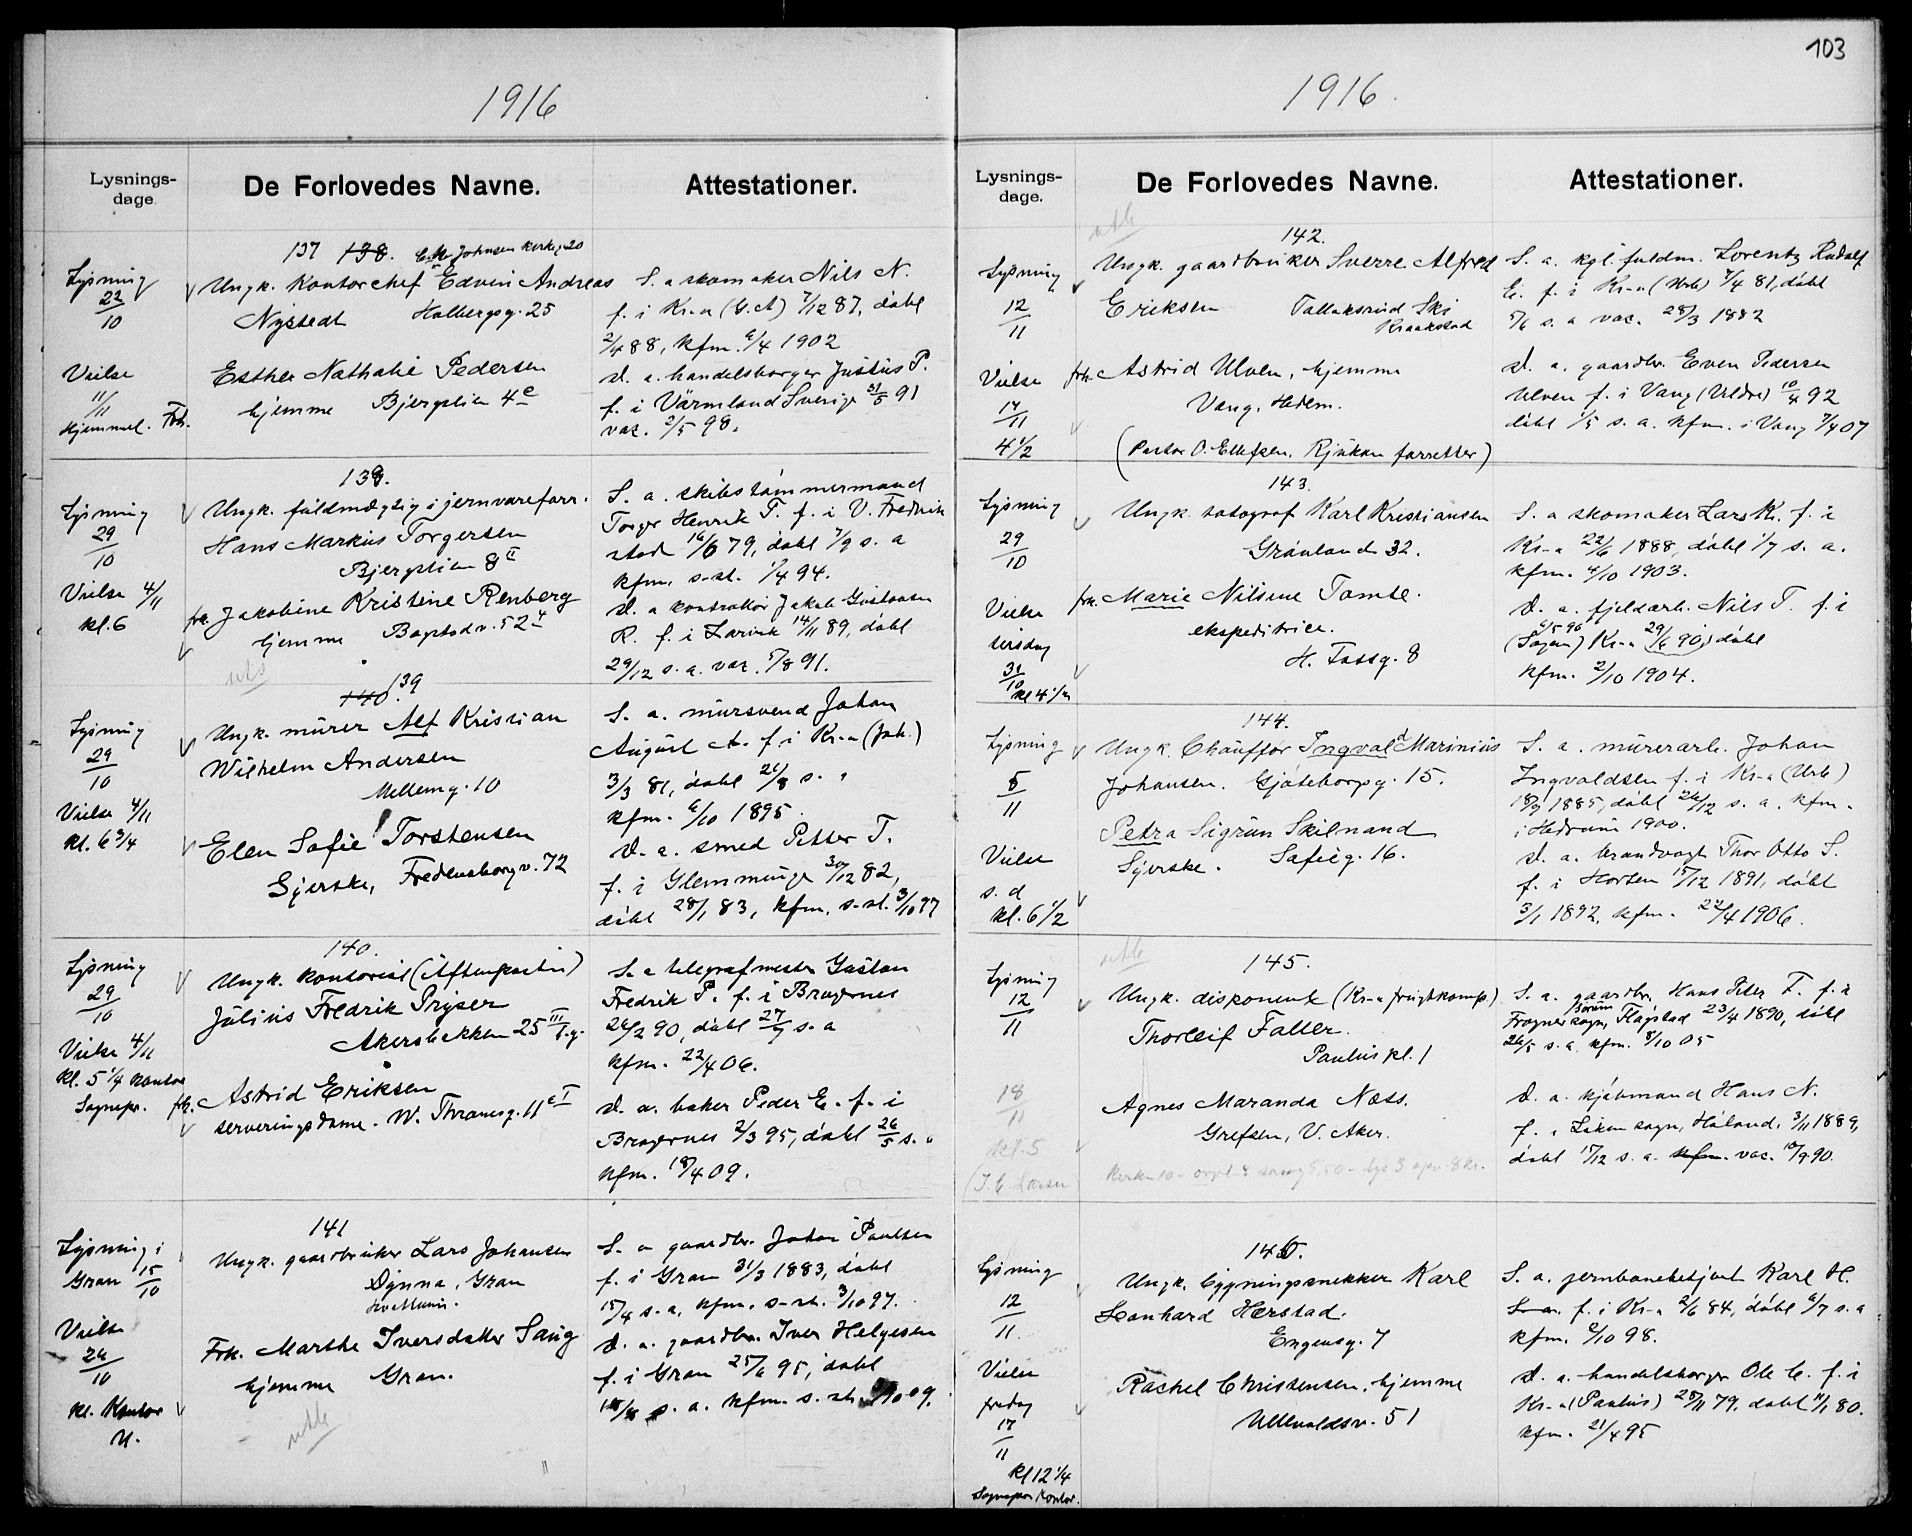 103
1916
Lysnings-
dage.
De Forlovedes Navne.
Attestationer.
137 138. Johnsen
Lysning
22/10
Ungk. Kontorchef Edvin Andreas
Nystedt Holbergsg. 25
S. a skomaker Nils N.
f. i Kr.a (G.A) 7/12 87, døbt
2/4 88, kfm. 6/4 1902
Vielse
11/11
Hjemmel. Frk.
Esther Nathalie Pedersen
hjemme Bjergstien 4c
D. a. handelsborger Justus P.
f. i Värmland Sverige 31/5 91
vac. 2/5 98.
138.
Lysning
29/10
Ungk. fuldmægtig i jernvareforr.
Hans Markus Torgersen
Bjergstien 8 II
S. a. skibstømmermand
Torger Henrik T. f. i V. Fredrik
stad 16/6 79, døbt 7/9 s. a
kfm. s-st. 1/4 94.
Vielse 4/11
kl. 6
frk. Jakobine Kristine Renberg
hjemme 52
D. a kontrollør Jakob Gustavsen
R. f. i Larvik 14/11 89, døbt
29/12 s. a. vac. 5/8 91.
140. 139
Lysning
29/10
Ungk. mürer Alf Kristian
Wilhelm Andersen
Mellemg. 10
S. a. mursvend Johan
August A. f. i Kr.a (Joh.)
3/3 81, døbt 21/8 s. "
kfm. 6/10 1895.
Vielse 4/11
kl. 6 3/4
Elen Sofie Torstensen
Syerske, Fredensborgv. 72
D. a. smed Petter T.
f. i Glemminge 30/12 82,
døbt 28/1 83, kfm. s-st. 3/10 97
140.
Lysning
29/10
Ungk. kontorist (Aftenposten)
Julius Fredrik Pryser
Akersbekken 25 III
S. a telegrafmester Gustav
Fredrik P. f. i Bragernes
26/2 90, døbt 27/7 s. a
kfm. 22/4 06.
Vielse 4/11
kl. 5 1/4 kontor
Sognepr.
frk. Astrid Eriksen
serveringsdame. W. Thranesg. 11 c I
D. a. baker Peder E. f. i
Bragernes 2/3 95, døbt 26/5 s. "
kfm. 18/4 09.
141
Lysning i
Gran 15/10
Ungk. gaardbruker Lars Johansen
Dynna, Gran
S. a gaardbr. Johan Paulsen
f. i Gran 31/3 1883, døbt
15/4 s. a, kfm. s-st. 3/10 97.
Vielse
26/10
kl. Kontor
U.
Frk. Marthe Iversdatter Saug
hjemme Gran.
D. a. gaardbr. Iver Helgesen
f. i Gran 25/6 95, døbt
s. a. kfm. s. st. 09.
1916.
Lysnings-
dage.
De Forlovedes Navne.
Attestationer.
142.
Lysning
12/11
Ungk. gaardbruker Sverre Alfred
Eriksen Tallaksrud Ski
Kraakstad
S. a. kgl. fuldm. Lorentz Rudolf
E. f. i Kr.a (Urb) 7/4 81, døbt
5/6 s. a vac. 28/3 1882
Vielse
17/11
4 1/2
frk. Astrid Ulven, hjemme
Vang, Hedem.
(Pastor O. Ellefsen, Rjukan forretter)
D. a. gaardbr. Even Pedersen
Ulven f. i Vang (Uldre) 10/4 92
døbt 1/5 s. a. kfm. i Vang 7/4 07
143.
Lysning
29/10
Ungk. fotograf Karl Kristiansen
Grønland 32.
S. a skomaker Lars Kr. f. i
Kr.a 22/6 1888, døbt 1/7 s. a.
kfm. 4/10 1903.
Vielse
tirsdag
31/10
kl 4 1/2
frk. Marie Nilsine Tomte.
ekspeditrice.
H. Fossg. 8
D. a. fjeldarb. Nils T. f. i
(Sagene) Kr.a 29/6 90, døbt
kfm. 2/10 1904.
144.
Lysning
5/11
Ungk. Chauffør Ingvald Marinius
Johansen. Gjøteborgg. 15.
S. a. mürerarb. Johan
Ingvaldsen f. i Kr.a (Urb)
1885, døbt 26/12 s. a. kfm.
i Hedrum 1900.
Vielse
s. d
kl. 6 1/2
Petra Sigrun Skilnand
Syerske. Sofieg. 16.
D. a. brandvagt Thor Otto S.
f. i Horten 15/12 1891, døbt
3/1 1892, kfm. 22/4 1906.
145.
Lysning
12/11
Ungk. disponent (Kr.a frugtkomp)
Thorleif Falter.
Paulus pl. 1
S. a. gaardbr. Hans Peter F. f. i
Frogner sogn, Flagstad 23/4 1890, døbt
26/5 s. a. kfm. 8/10 05
18/11
kl. 5
Larsen
Agnes Maranda Næss.
Grefsen, V. Aker.
D. a. kjøbmand Hans N.
f. i Løken sogn, Høland, 3/11 1889,
døbt 15/12 s. a. kfm. vac. 18/9 90.
146.
Lysning
12/11.
Ungk. bygningssnekker Karl
Leonhard Herstad.
Engensg. 7
S. a. jernbanebetjent Karl H.
f. i Kr.a 2/6 84, døbt 6/7 s. a
kfm. 2/10 98.
Vielse
fredag
17/11
kl 12 1/4
Sognepr kontor.
Rachel Christensen, hjemme
Ullevaldsv. 51
D. a. handelsborger Ole C. f. i
Kr.a (Paulus) 28/11 79, døbt 11/1 80.
kfm. 21/4 95